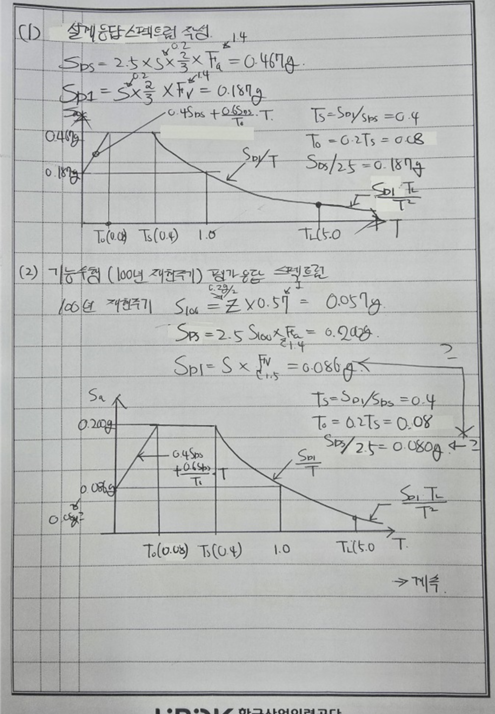 (1) 설계응답스펙트럼 작성.
0.2 1.4
S_DS = 2.5 × S × 2/3 × F_a = 0.467g.
0.2 1.4
S_D1 = S × 2/3 × F_V = 0.187g
0.4S_DS + 0.6S_DS/T_0 · T.
T_S = S_D1/S_DS = 0.4
T_0 = 0.2T_S = 0.08
S_DS/2.5 = 0.187g
0.467g
0.187g
S_D1/T
S_D1 T_L/T²
T_0(0.08) T_S(0.4) 1.0 T_L(5.0 T
(2) 기능수행 (100년 재현주기) 평가응답 스펙트럼
100년 재현주기 S_100 = Z × 0.57 = 0.057g.
S_DS = 2.5 S_100 × F_a = 0.200g.
1.4
S_D1 = S × F_V = 0.086g ?
1.5
T_S = S_D1/S_DS = 0.4
T_0 = 0.2T_S = 0.08
S_DS/2.5 = 0.080g ← ?
S_a
0.200g
0.4S_DS + 0.6S_DS/T_0 · T
0.086g
S_D1/T
S_D1 T_L/T²
T_0(0.08) T_S(0.4) 1.0 T_L(5.0 T.
→ 계속
한국산업인력공단